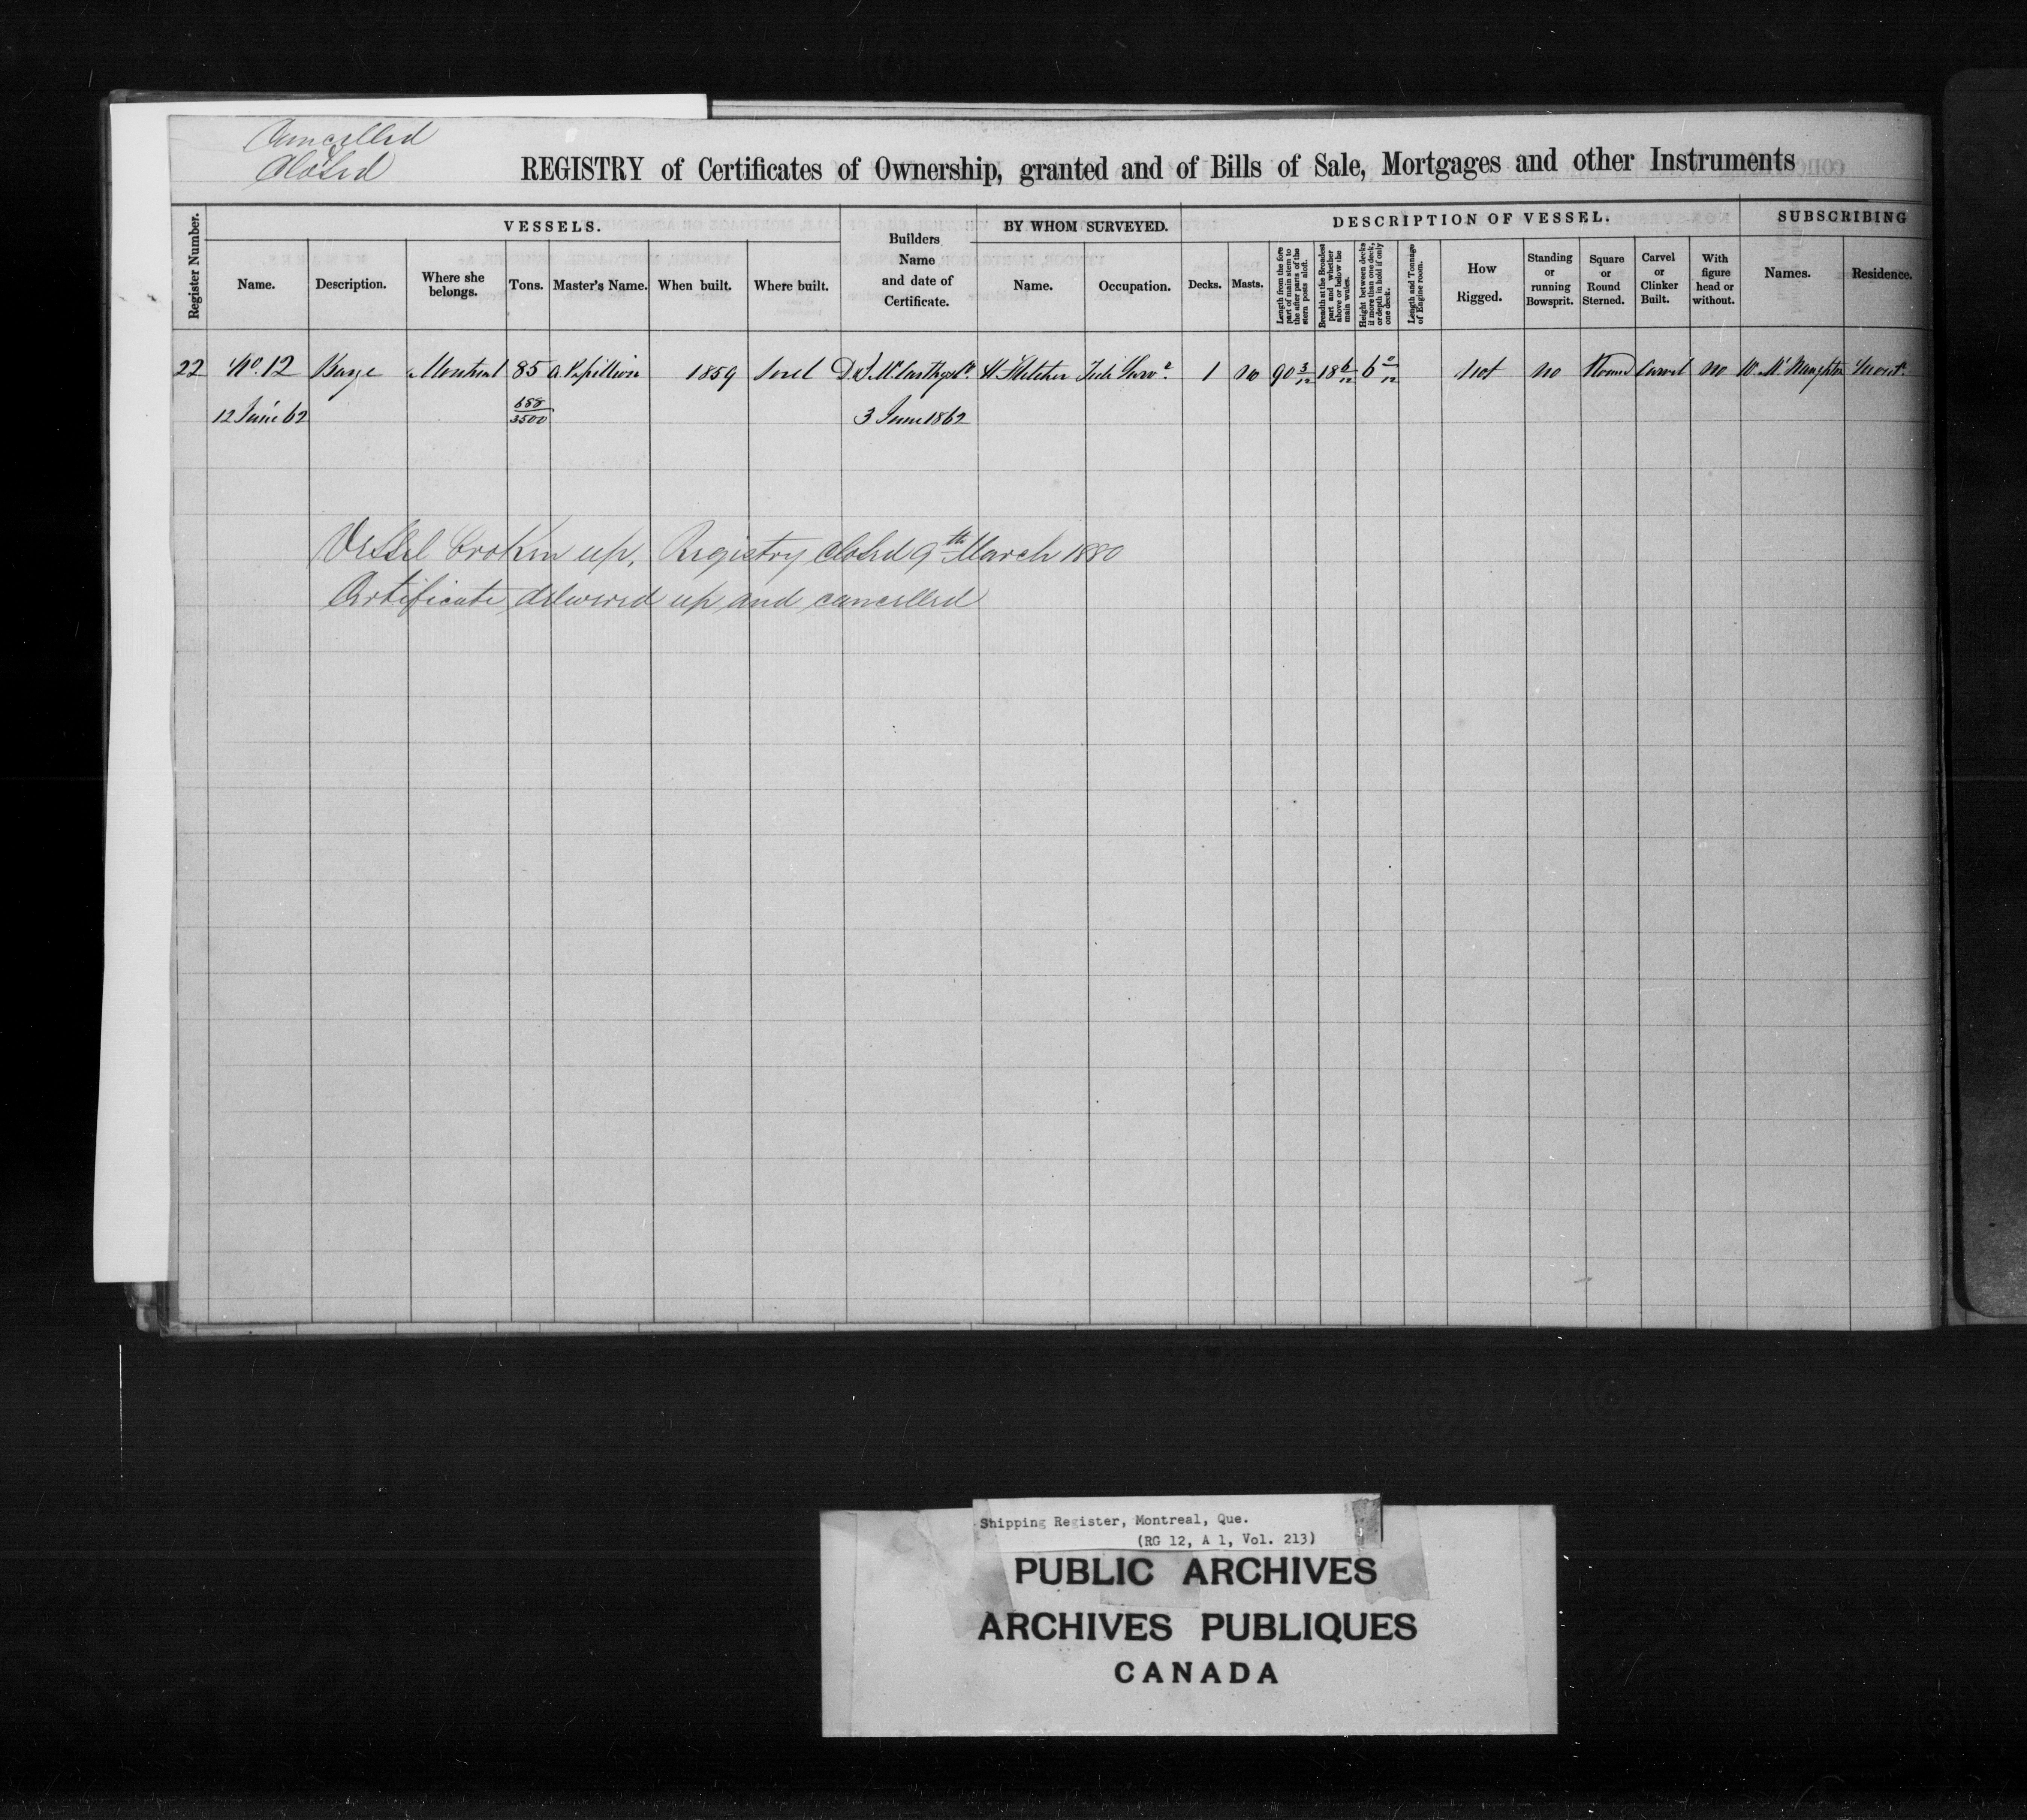 Cancelled
&
Closed
REGISTRY of Certificates of Ownership, granted and of Bills of Sale, Mortgages and other Instruments
Register Number.
VESSELS.
Builders Name and date of Certificate.
BY WHOM SURVEYED.
DESCRIPTION OF VESSEL.
SUBSCRIBING
Name.
Description.
Where she belongs.
Tons.
Master's Name.
When built.
Where built.
Name.
Occupation.
Decks.
Masts.
Length from the fore part of main stem to the after parts of the stern posts aloft.
Breadth at the Broadest part and whether above or below the main wales.
Height between decks if more than one deck, or depth in hold if only one deck.
Length and Tonnage of Engine room.
How Rigged.
Standing or running Bowsprit.
Square or Round Sterned.
Carvel or Clinker Built.
With figure head or without.
Names.
Residence.
22 No. 12 Barge Montreal 85 A Papillion 1859 Sorel D & J. McCarthy H Fletcher 1 no 90 3/12 18 6/12 6 0/12 not no Round Carvel no W. McNaughton
12 June 62 688/3500 3 June 1862
Vessel broken up, Registry closed 9th March 1880
Certificate delivered up and cancelled
Shipping Register, Montreal, Que.
(RG 12, A 1, Vol. 213)
PUBLIC ARCHIVES
ARCHIVES PUBLIQUES
CANADA